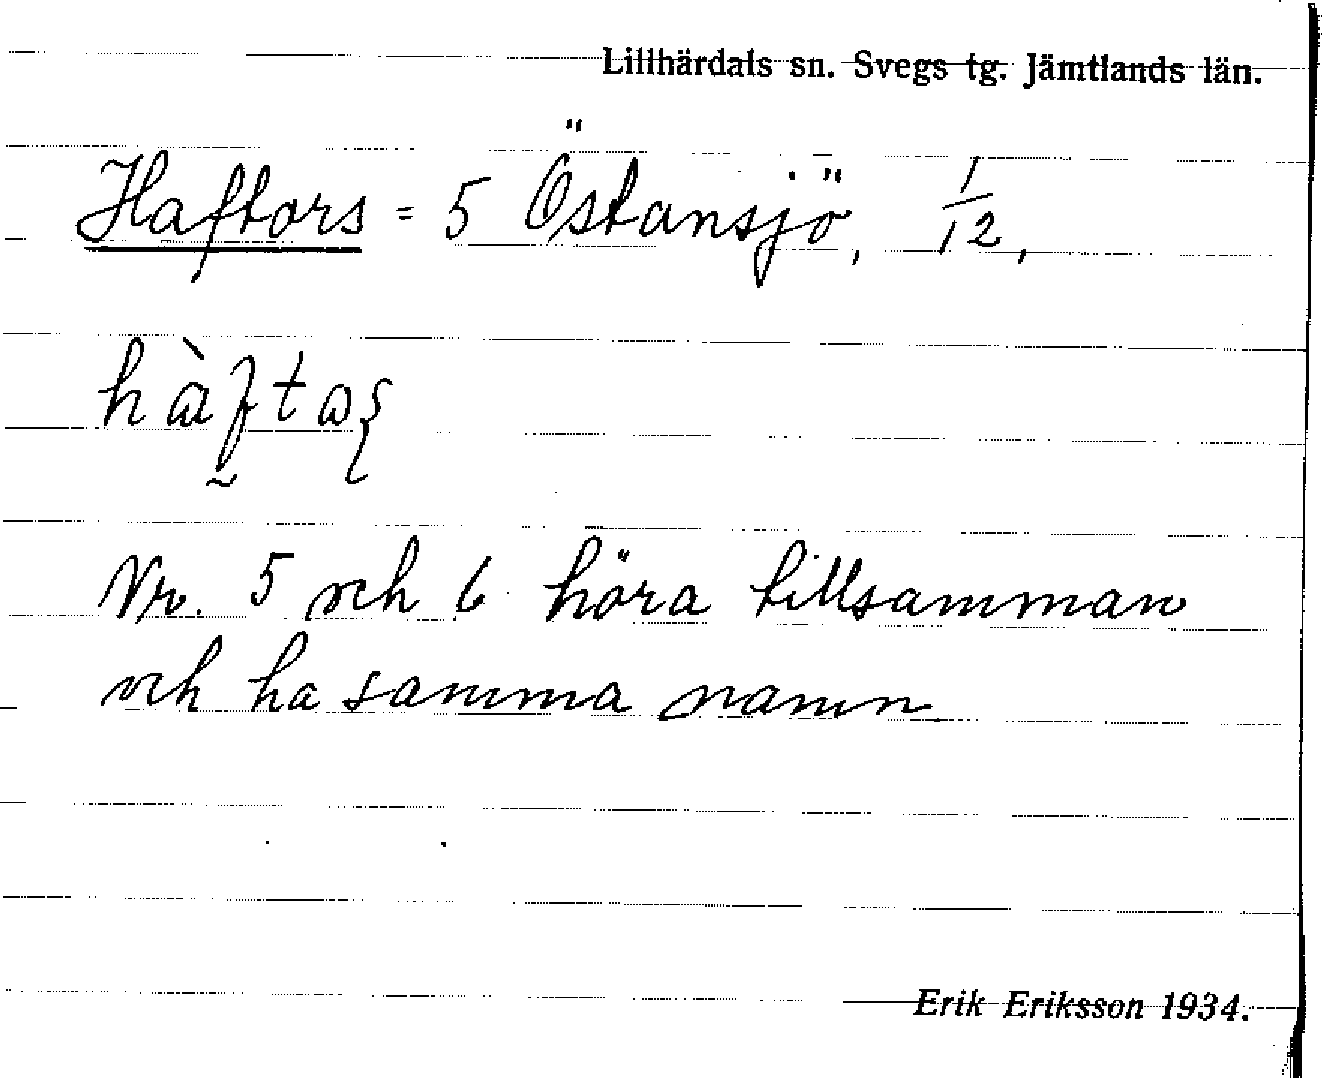 Lillhärdals sn. Svegs tg. Jämtlands län.
Haftors = 5 Östansjö, 1/12,
Nr. 5 och 6 höra tillsamman
och ha samma namn
Erik Eriksson 1934.